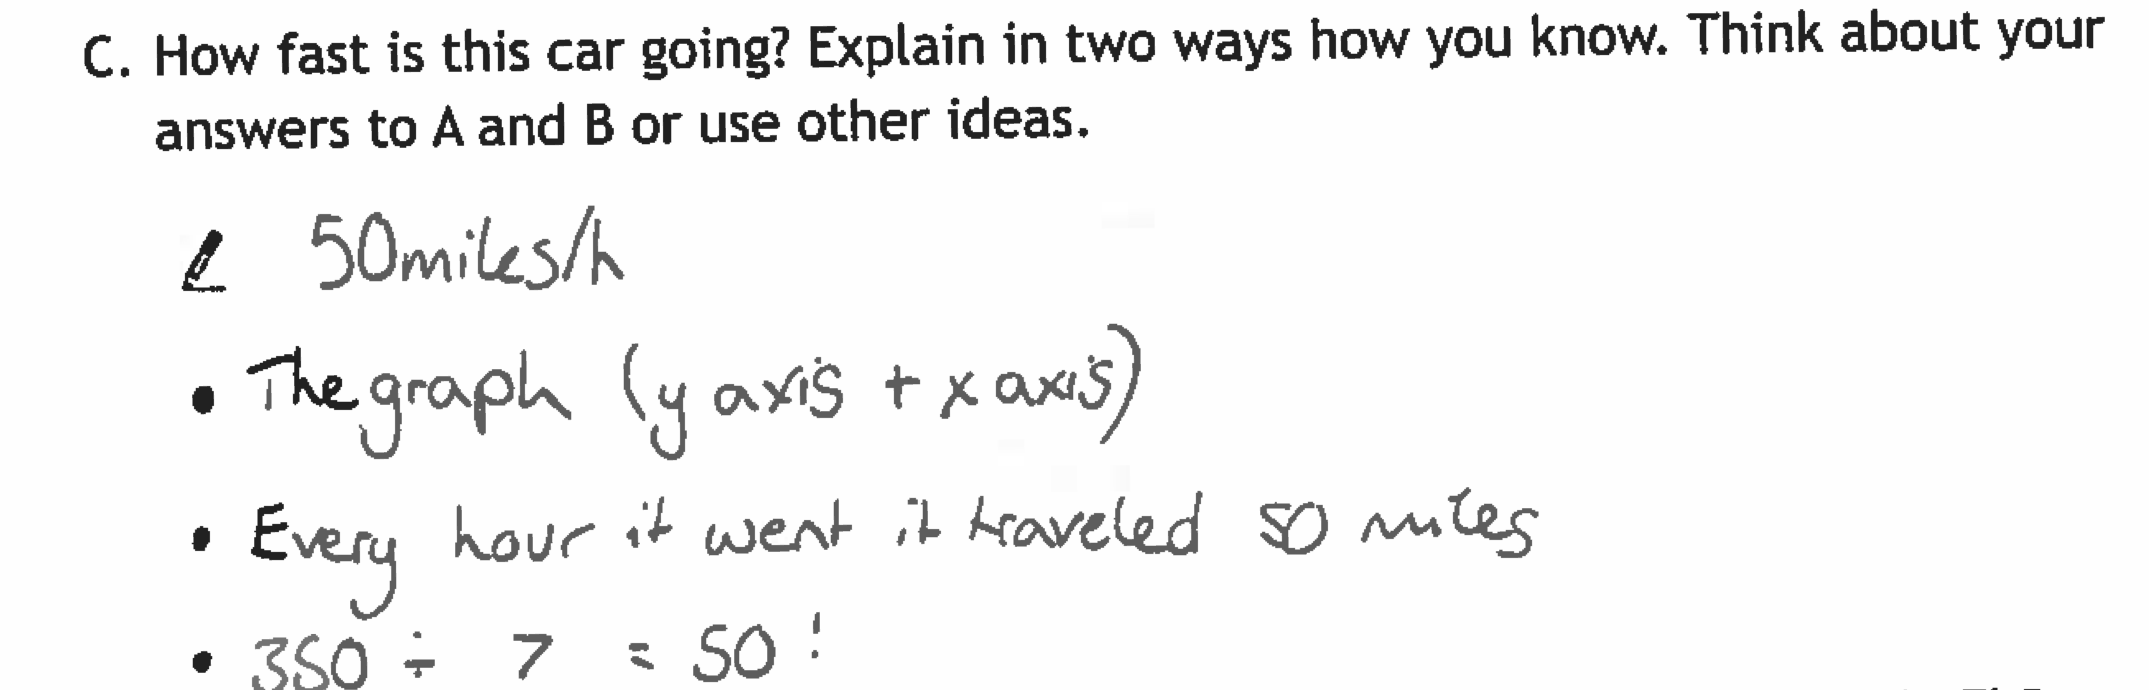 C. How fast is this car going? Explain in two ways how you know. Think about your
answers to A and B or use other ideas.
50miles/h
• The graph (y axis + x axis)
• Every hour it went it traveled 50 miles
• 350 ÷ 7 = 50!